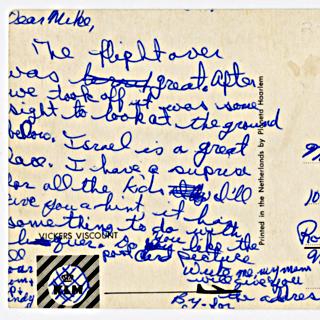 Dear Mike,
The flight over
was great. After
we took off it was some
sight to look at the ground
below. Israel is a great
place. I have a suprise
for all the kids I'll
give you a hint it has
something to do with
VICKERS VISCOUNT
So you like the
post Card picture
Write me, my mom
will give you
the address
B.Y.
KLM
Printed in the Netherlands by Planeta Haarlem